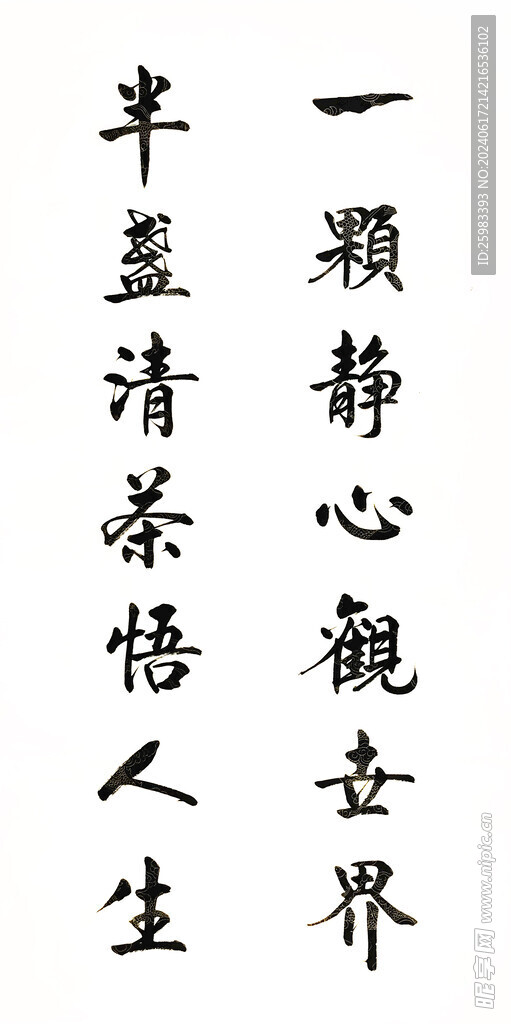 一顆静心觀世界
半盞清茶悟人生
ID:25983393 NO:20240617214216536102
昵享网 www.nipic.cn